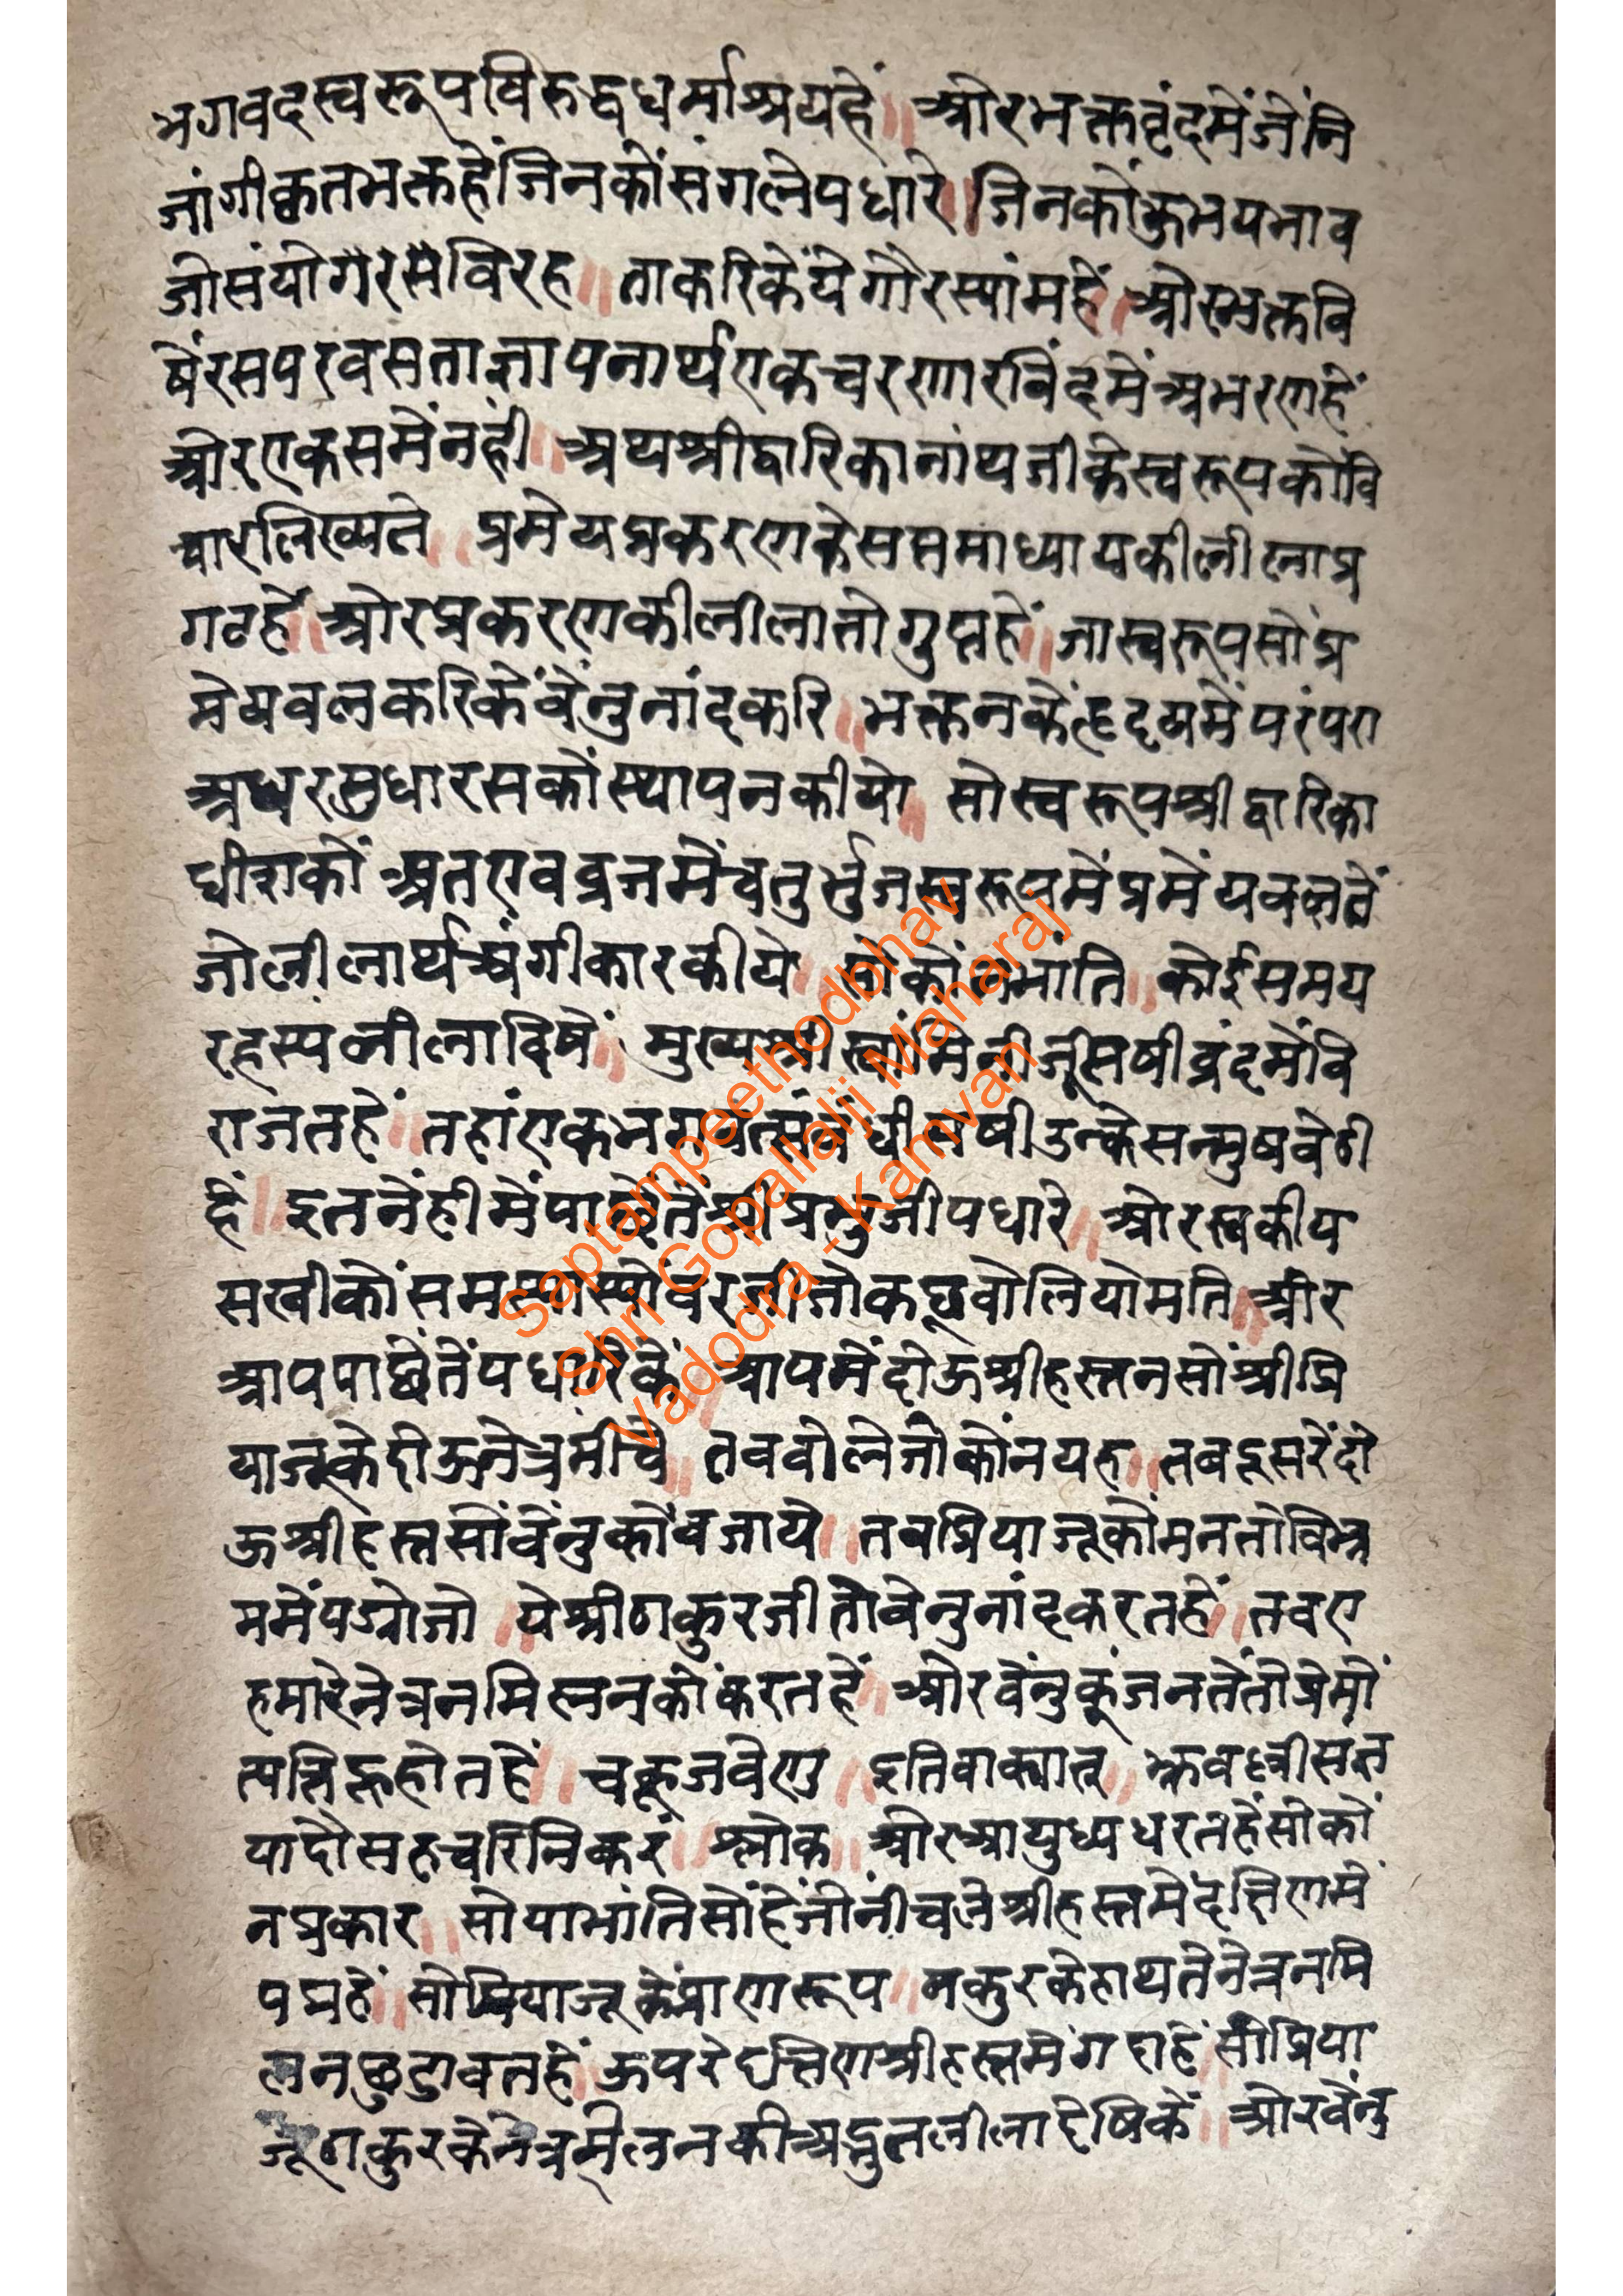 भगवदस्वरूपविरुद्धधर्माश्रयहें॥ ओरभक्तवृंदमेंजेंनि
जांगीकृतभक्तहेंजिनकोंसंगलेपधारे॥जिनकोंउभयभाव
जोसंयोगरसमेंविरह॥ ताकरिकेंयेगौरस्यांमहें॥ ओरभक्तवि
षेंरसपरवसताज्ञापनार्थएकचरणारविंदमेंअभरणहें
ओरएकसमेंनहीं॥ अथश्रीद्वारिकानांथजीकेस्वरूपकोवि
चारलिख्यते॥ प्रमेयप्रकरणकेसप्तमाध्यायकीलीलाप्र
गटहें॥ ओरप्रकरणकीलीलातोगुप्तहें॥ जास्वरूपसोंप्र
मेयबलकरिकेंवेंनुनांदकरि॥ भक्तनकेंहृदयमेंपरंपरा
अधरसुधारसकोंस्थापनकीयो॥ सोस्वरूपश्रीद्वारिका
धीशकों अतएवव्रजमेंचतुर्भुजस्वरूपमेंप्रमेंयबलतें
जोलीलार्थअंगीकारकीये॥ सोकोंनभांति॥ कोईसमय
रहस्यलीलाविषें॥ मुख्यश्रीस्वांमिनीजूसषीवृंदमेंवि
राजतहें॥ तहांएकभगवत्संबंधीसषीउन्केसन्मुषबेठी
हें॥ इतनेंहीमेंपाछेंतेंश्रीप्रभुजीपधारे॥ ओरस्वकीय
सखीकोंसमस्यासोंबरजीजोकछूबोलियोमति॥ ओर
आपपाछेंतेंपधारिकें॥ आपमेंदोऊश्रीहस्तनसोंश्रीप्रि
याजूकेदोऊनेत्रमींचे॥ तबबोलेजोकोंनयह॥ तबदूसरेंदो
ऊश्रीहस्तसोंवेंनुकोंबजाये॥ तबप्रियाजूकोमनतोविभ्र
ममेंपड्योजो॥ येश्रीठाकुरजीतोवेनुनांदकरतहें॥ तबए
हमारेनेत्रनमिलनकोंकरतहें॥ ओरवेंनुकूंजनतेंतोप्रेमो
त्पत्तिहूहोतहें॥ चकूजवेणु॥ इतिवाक्यात्॥
श्लोक॥ ओरआयुध्यधरतहेंसोकों
नप्रकार॥ सोयाभांतिसोंहेंजोनींचलेश्रीहस्तमेंदक्षिणमें
पद्महें॥ सोप्रियाजूकेंप्राणरूप॥ ठाकुरकेहाथतेंनेत्रनमि
लनछुडावतहें॥ऊपरेदक्षिणश्रीहस्तमेंगदाहें॥सोप्रिया
जूठाकुरकेनेत्रमीलनकीअद्भुतलीलादेषिकें॥ ओरवेंनु
Saptampeethodbhav
Shri Gopallalji Maharaj
Vadodra - Kamvan